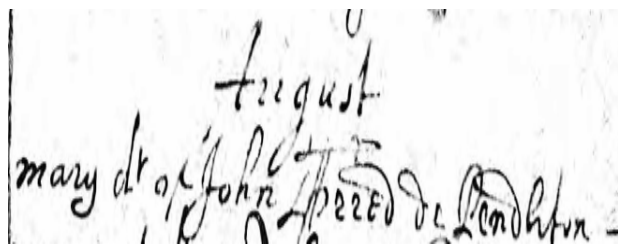 August
mary dr of John Speed de Pendleton